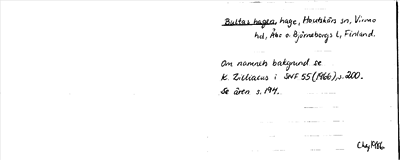 Bultas hagen, hage, Houtskärs sn, Virmo
hd, Åbo o. Björneborgs l, Finland.
Om namnets bakgrund se
K. Zilliacus i SNF 55 (1966), s. 200.
Se även s. 194.